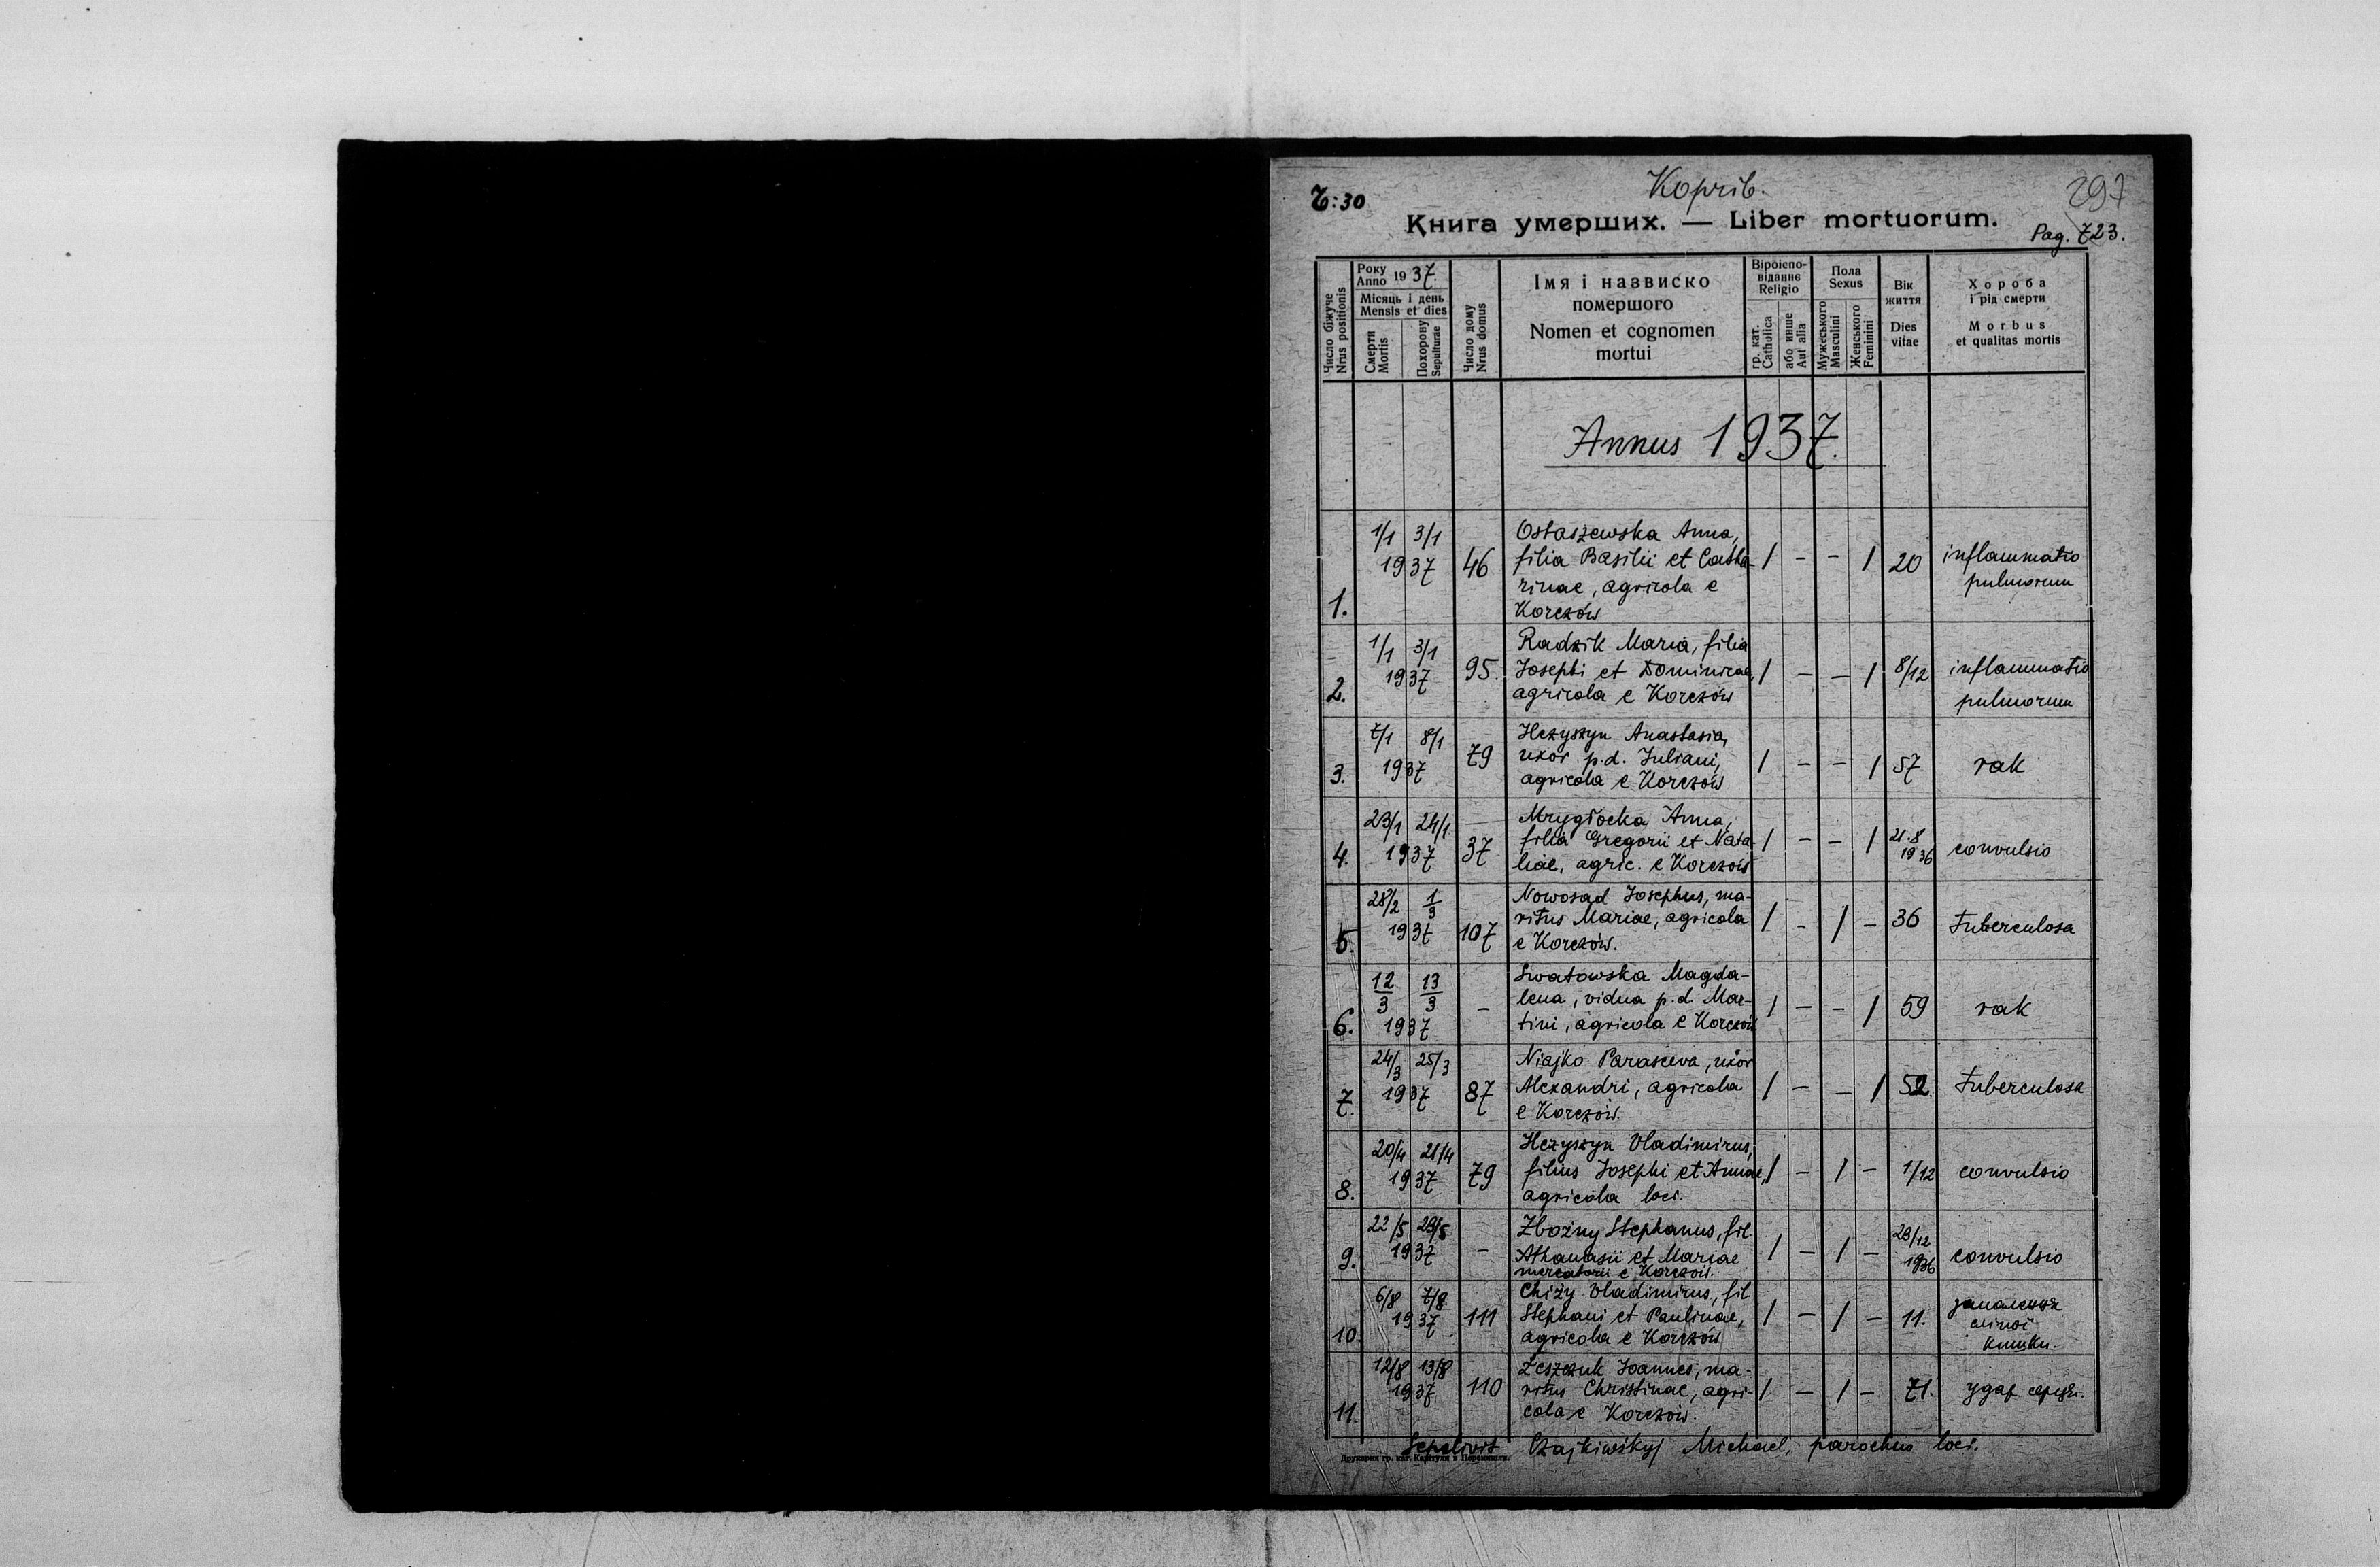 Корчів.
T:30
297
Книга умерших. — Liber mortuorum.
Pag. 723.
Число біжуче
Nrus positionis
Року
Anno 1937.
Місяць і день
Mensis et dies
Смерти
Mortis
Похорону
Sepulturae
Число дому
Nrus domus
Імя і назвиско
помершого
Nomen et cognomen
mortui
Віроіспо-
віданнє
Religio
гр. кат.
Catholica
або инше
Aut alia
Пола
Sexus
Мужеського
Masculini
Женського
Feminini
Вік
життя
Dies
vitae
Хороба
і рід смерти
Morbus
et qualitas mortis
Annus 1937.
1. 1/1 3/1 1937 46
Ostaszewska Anna,
filia Basilii et Catha-
rinae, agricola e
Korczów
/ - - / 20 inflammatio
pulmorum
2. 1/1 3/1 1937 95.
Radzik Maria, filia
Josephi et Dominicae,
agricola e Korczów
/ - - / 8/12 inflammatio
pulmorum
3. 7/1 8/1 1937 79
Hczyszyn Anastasia,
uxor p.d. Juliani,
agricola e Korczów
/ - - / 57 rak
4. 23/1 24/1 1937 37
Mrygłocka Anna,
filia Gregorii et Nata-
liae, agric. e Korczów
/ - - / 21.8
1936 convulsio
5. 28/2 1/3 1937 107
Nowosad Josephus, ma-
ritus Mariae, agricola
e Korczów.
/ - / - 36 tuberculosa
6. 12/3 13/3 1937 -
Swatowska Magda-
lena, vidua p.d. Mar-
tini, agricola e Korczów
/ - - / 59 rak
7. 24/3 25/3 1937 87
Niajko Parasceva, uxor
Alexandri, agricola
e Korczów.
/ - - / 52. tuberculosa
8. 20/4 21/4 1937 79
Hczyszyn Vladimirus,
filius Josephi et Annae,
agricola loci.
/ - / - 1/12 convulsio
9. 22/5 23/5 1937 -
Zbożny Stephanus, fil.
Athanasii et Mariae
mercatorii e Korczów.
/ - / - 28/12
1936 convulsio
10. 6/8 7/8 1937 111
Chiży Vladimirus, fil.
Stephani et Paulinae,
agricola e Korczów
/ - / - 11. запалення
сліпої
кишки.
11. 12/8 13/8 1937 110
Leszczuk Joannes, ma-
ritus Christinae, agri-
cola e Korczów.
/ - / - 71. удар серця.
Sepelivit Czajkiwśkyj Michael, parochus loci.
Друкарня гр. кат. Капітули в Перемишли.